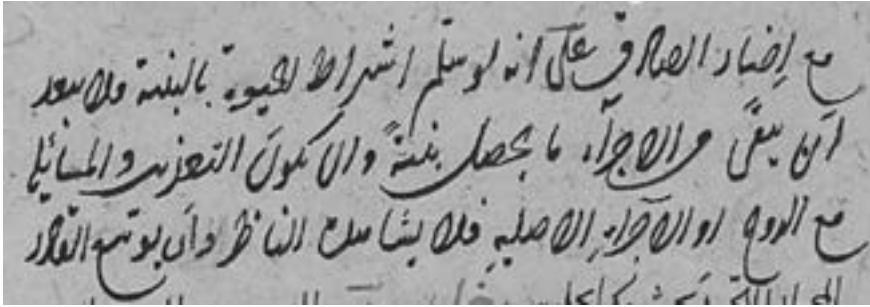 مع اخبار الصادق على انه لو سلم اشتراط الحيوة بالبنية فلا يبعد
ان يبقى من الاجزاء ما يحصل بنية وان يكون التعذيب والمسائلة
مع الروح او الاجزاء الاصلية فلا يشاهده الناظر وان يوسع القادر